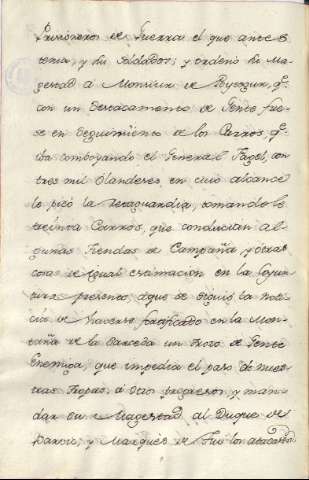 Prisioneros de Guerra el que ante
tenia, y su Soldados; y ordenó su Ma-
gestad a Monsieur de Puysegur, q.e
con un Destacamento de Gente fue-
se en Seguimiento de los Carros q.e
iba comboyando el General Fagel, con
tres mil Olandeses, en cuio alcance
le picó la retaguardia, tomandole
treinta Carros, que conducian al-
gunas Tiendas de Campaña, y otras
cosas de igual estimacion en la Coyun-
tura presente, aque se siguió la noti-
cia de haverse fortificado en la Mon-
taña de la un trozo de Gente
Enemiga, que impedia el paso de nues-
tras Tropas, a otros progresos, y man-
dar Su Magestad al Duque de
y Marqués de los atacase